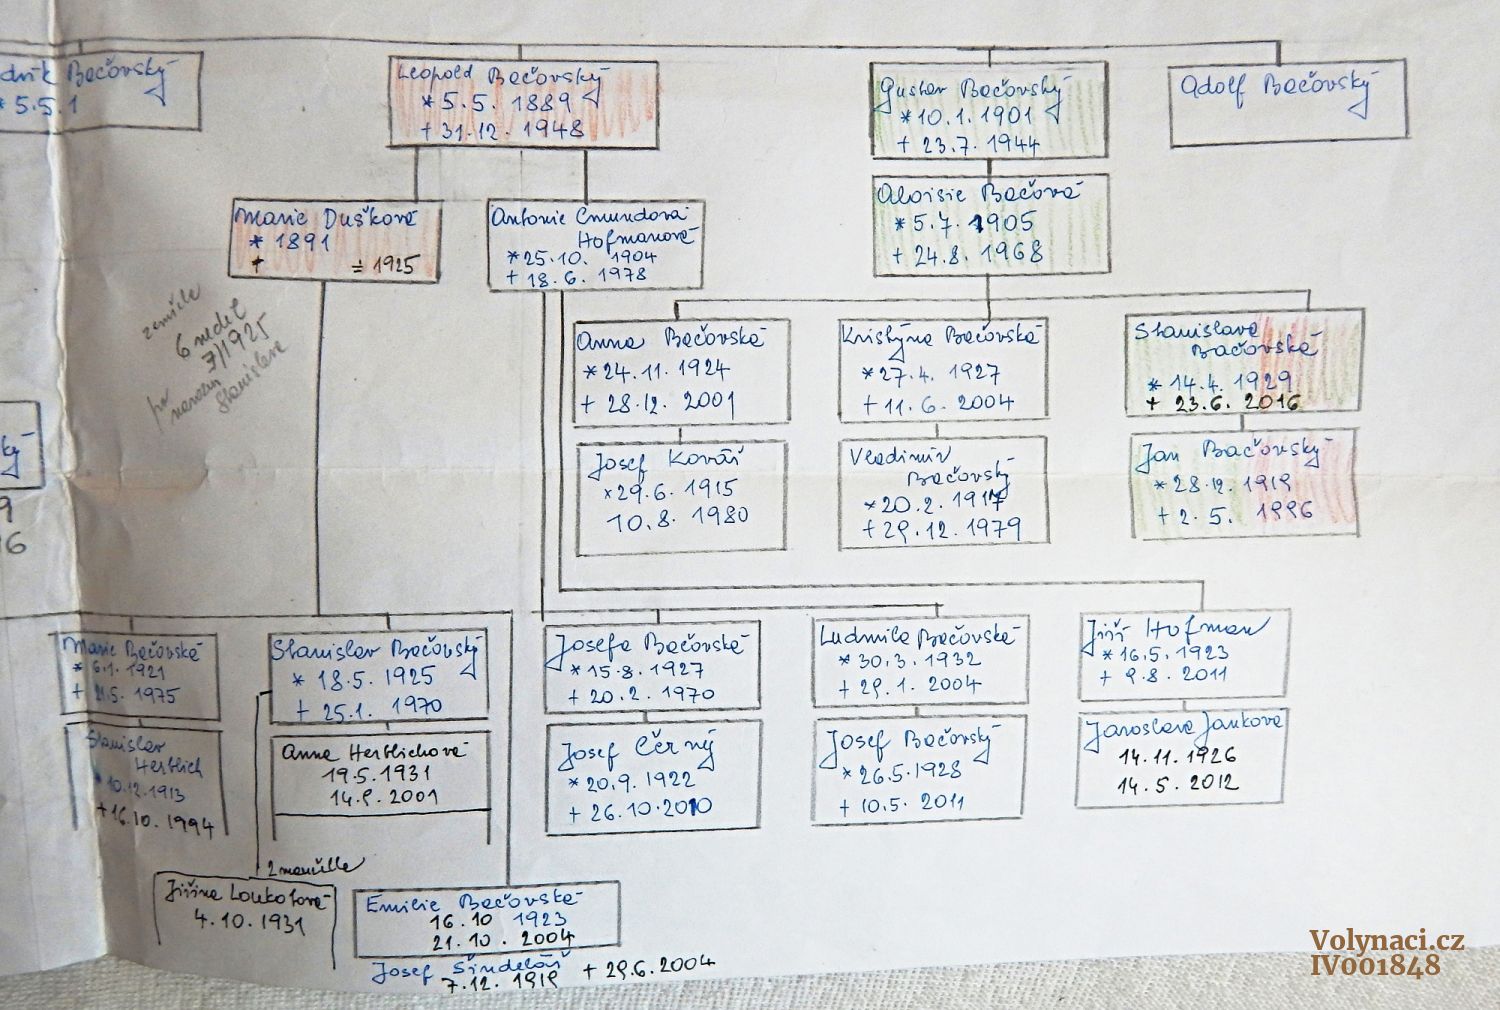 Bačovský
*5.5.1
Leopold Bačovský
*5.5. 1889
+31.12. 1948
Gustav Bačovský
*10.1.1901
+ 23.7. 1944
Adolf Bačovský
Marie Dušková
* 1891
+ = 1925
Antonie Cmundová
Hofmanová
*25.10. 1904
+ 18.6. 1978
Aloisie Bačová
* 5.7. 1905
+ 24.8. 1968
zemřela
6 neděl
7/1925
po
narozen
Stanislava
Anna Bačovská
*24.11.1924
+ 28.12. 2001
Kristýna Bačovská
*27.4. 1927
+ 11.6. 2004
Stanislava
Bačovská
* 14.4. 1929
+ 23.6. 2016
Josef Kovář
*29.6. 1915
10.8. 1980
Vladimír
Bačovský
*20.2. 1917
+ 29.12. 1979
Jan Bačovský
* 28.12. 1919
+ 2.5. 1996
Marie Bačovská
* 6.1. 1921
+ 21.5. 1975
Stanislav Bačovský
* 18.5. 1925
+ 25.1. 1970
Josefa Bačovská
*15.8. 1927
+ 20.2. 1970
Ludmila Bačovská
* 30.3. 1932
+ 29.1. 2004
Jiří Hofman
*16.5. 1923
+ 9.8. 2011
Stanislav
Herblich
*10.12.1913
+16.10. 1994
Anna Herblichová
19.5.1931
14.9. 2001
Josef Černý
*20.9. 1922
+ 26.10.2010
Josef Bačovský
*26.5.1928
+ 10.5. 2011
Jaroslava Janková
14.11.1926
14.5. 2012
2 manželka
Jiřina Loukotová
4.10.1931
Emilie Bačovská
16.10 1923
21.10. 2004
Josef Šindelář
7.12. 1919
+ 29.6.2004
Volynaci.cz
IV001848